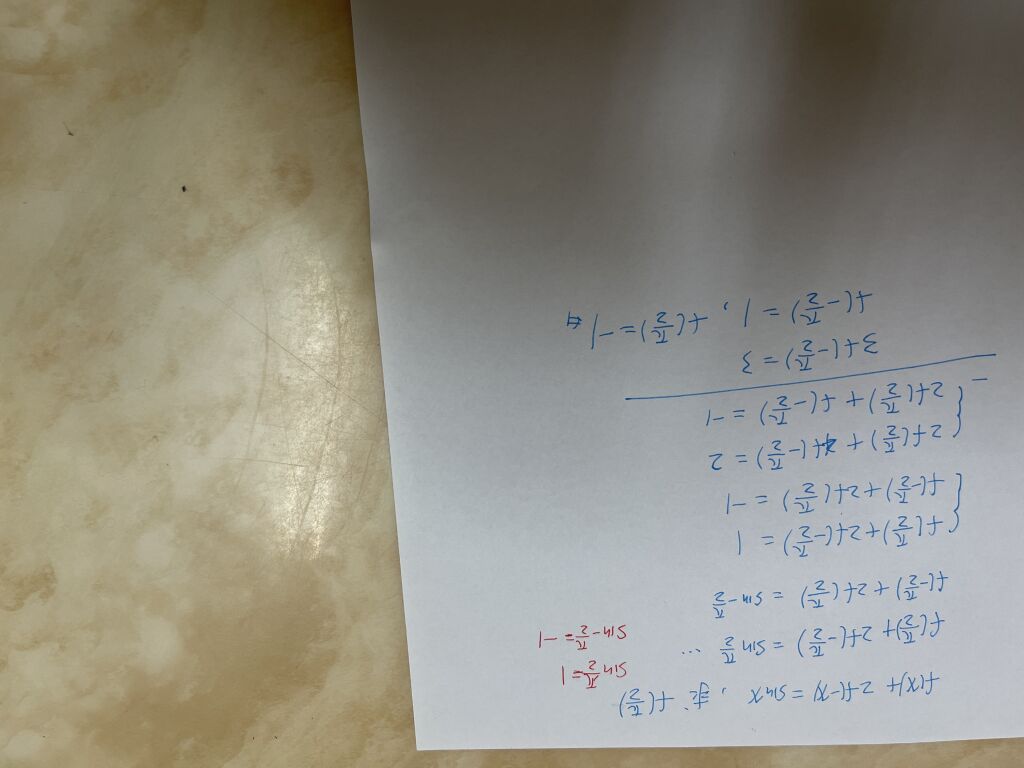 f(x)+ 2f(-x) = sinx , 求 f(π/2)
f(π/2)+ 2f(-π/2) = sin π/2 ...
sin π/2 = 1
f(-π/2) + 2f(π/2) = sin -π/2
sin -π/2 = -1
f(π/2)+2f(-π/2) = 1
f(-π/2)+2f(π/2) = -1
2f(π/2) + 4f(-π/2) = 2
2f(π/2) + f(-π/2) = -1
3f(-π/2) = 3
f(-π/2) = 1 , f(π/2) = -1 #